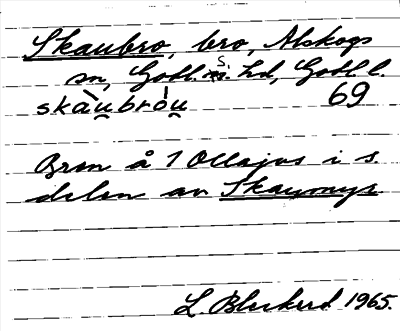 Skaubro, bro, Alskogs
sn, Gotl. s. hd, Gotl. l.
skàu̯bróu̯ 69
Bron å 1 Ollajvs i s.
delen av Skaumyr.
L. Blerkerd 1965.